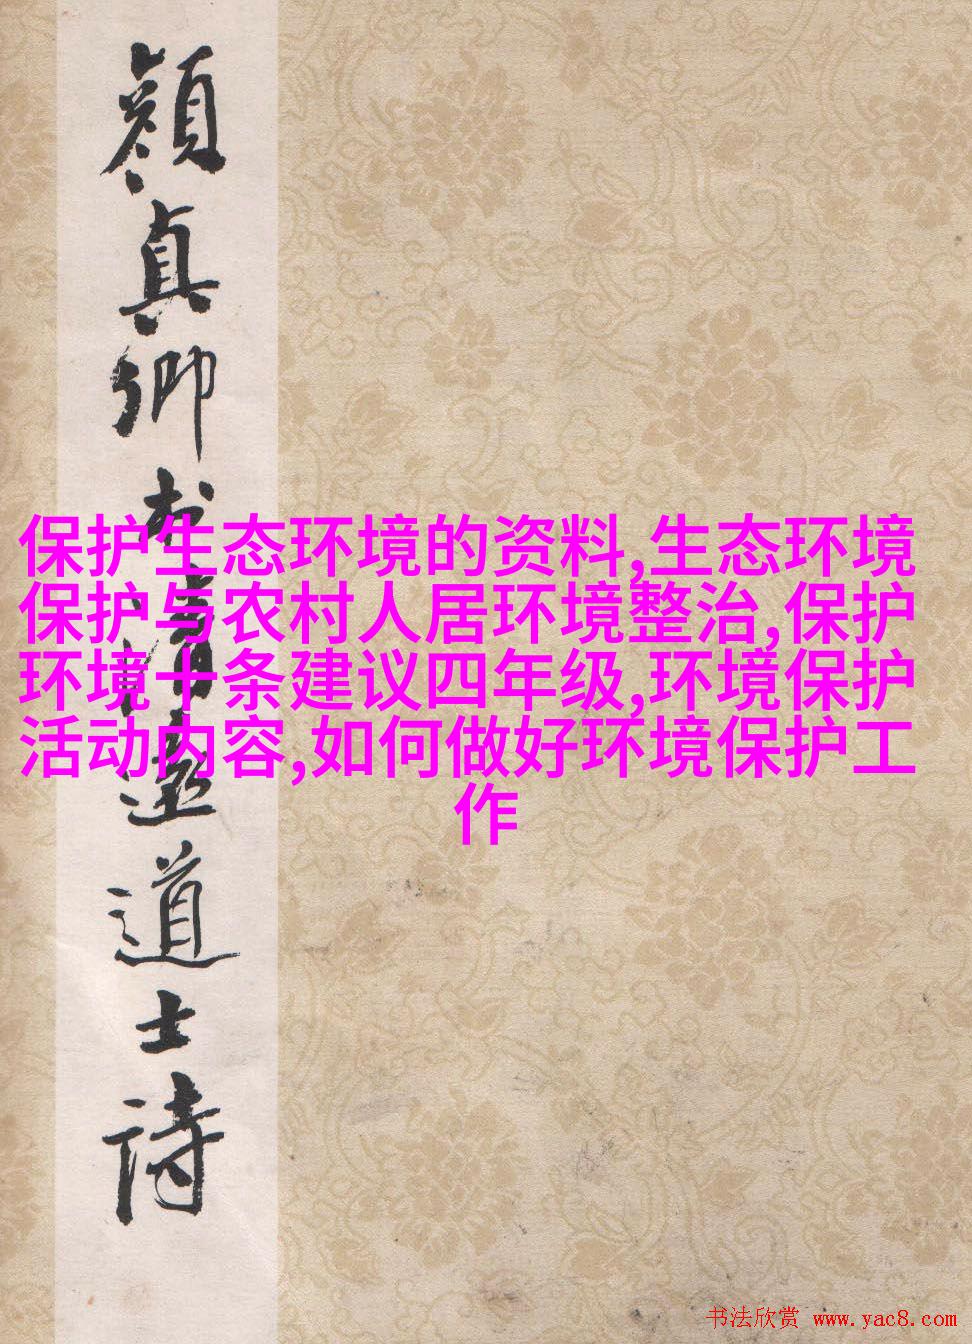 顏真卿书清遠道士詩
保护生态环境的资料,生态环境
保护与农村人居环境整治,保护
环境十条建议四年级,环境保护
活动内容,如何做好环境保护工
作
书法欣赏 www.yac8.com